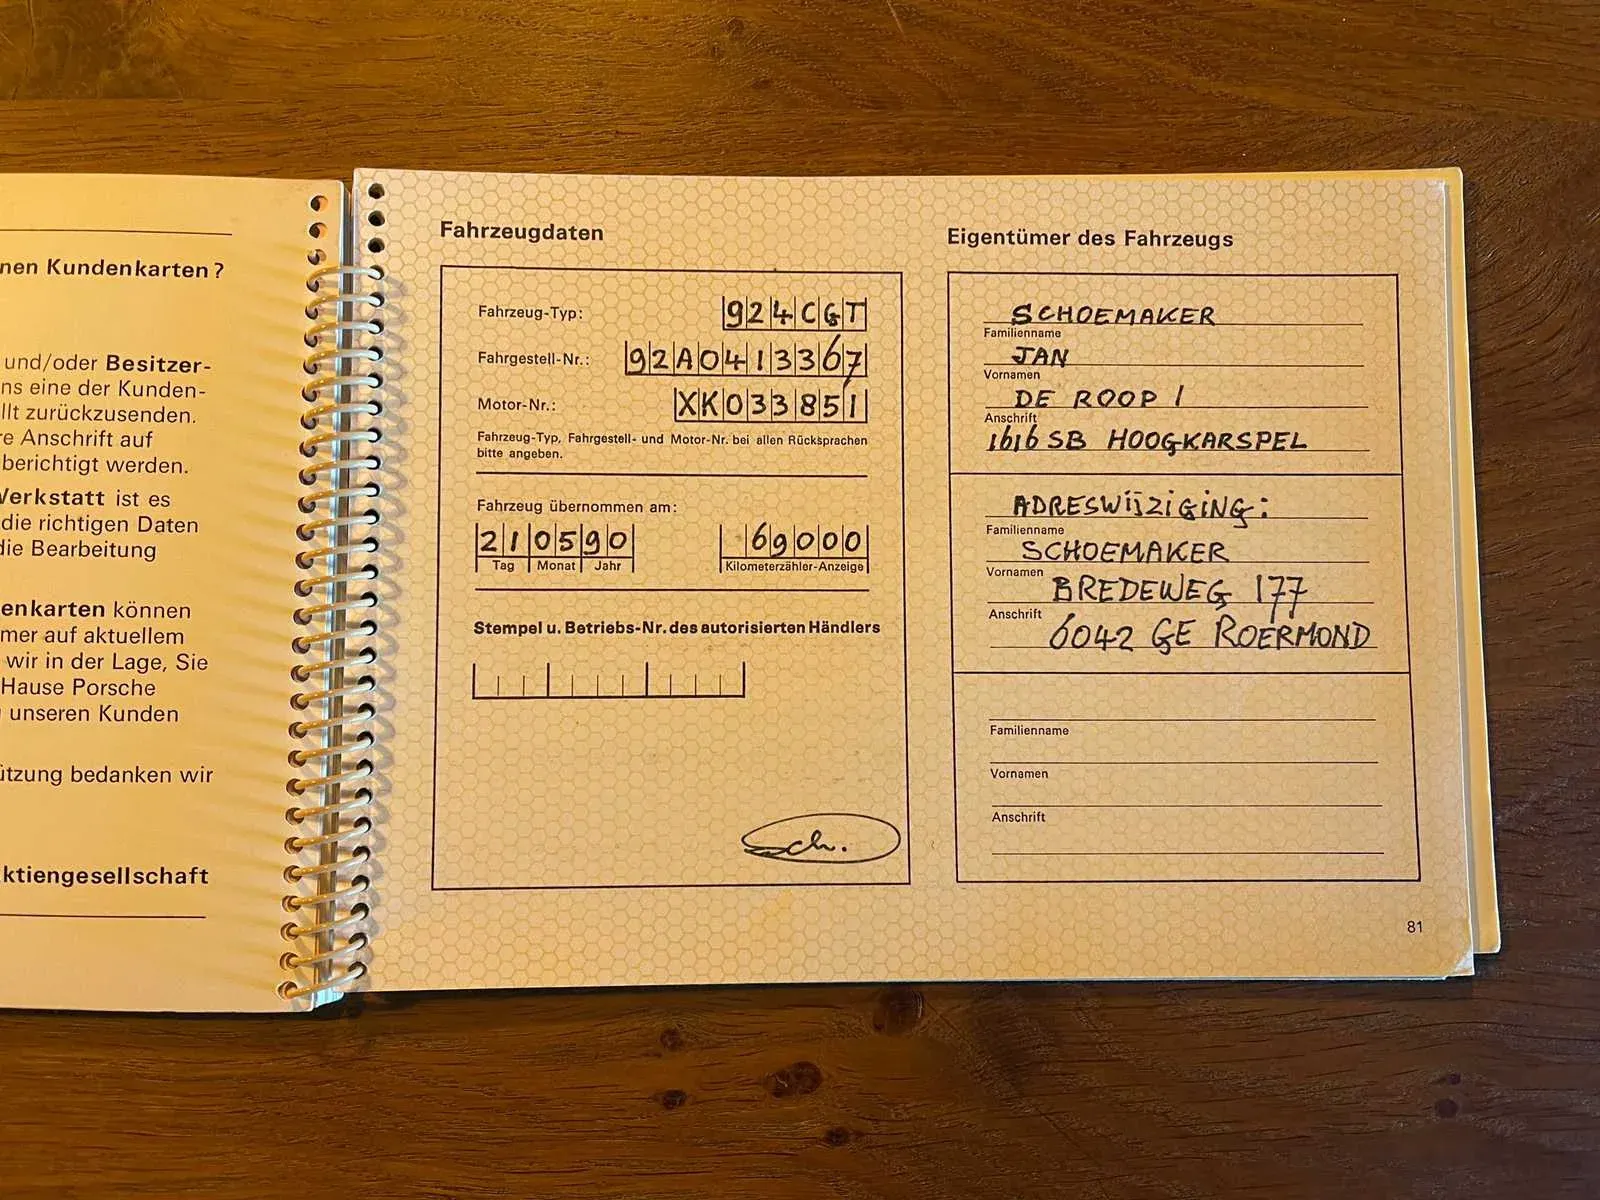 nen Kundenkarten?
und/oder Besitzer-
ns eine der Kunden-
llt zurückzusenden.
re Anschrift auf
berichtigt werden.
Werkstatt ist es
die richtigen Daten
die Bearbeitung
enkarten können
mer auf aktuellem
wir in der Lage, Sie
Hause Porsche
unseren Kunden
ützung bedanken wir
ktiengesellschaft
Fahrzeugdaten
Fahrzeug-Typ: 924CGT
Fahrgestell-Nr.: 92A0413367
Motor-Nr.: XK033851
Fahrzeug-Typ, Fahrgestell- und Motor-Nr. bei allen Rücksprachen
bitte angeben.
Fahrzeug übernommen am:
210590 69000
Tag Monat Jahr Kilometerzähler-Anzeige
Stempel u. Betriebs-Nr. des autorisierten Händlers
Sch.
Eigentümer des Fahrzeugs
SCHOEMAKER
Familienname
JAN
Vornamen
DE ROOP 1
Anschrift
1616 SB HOOGKARSPEL
ADRESWIJZIGING:
Familienname
SCHOEMAKER
Vornamen
BREDEWEG 177
Anschrift
6042 GE ROERMOND
Familienname
Vornamen
Anschrift
81